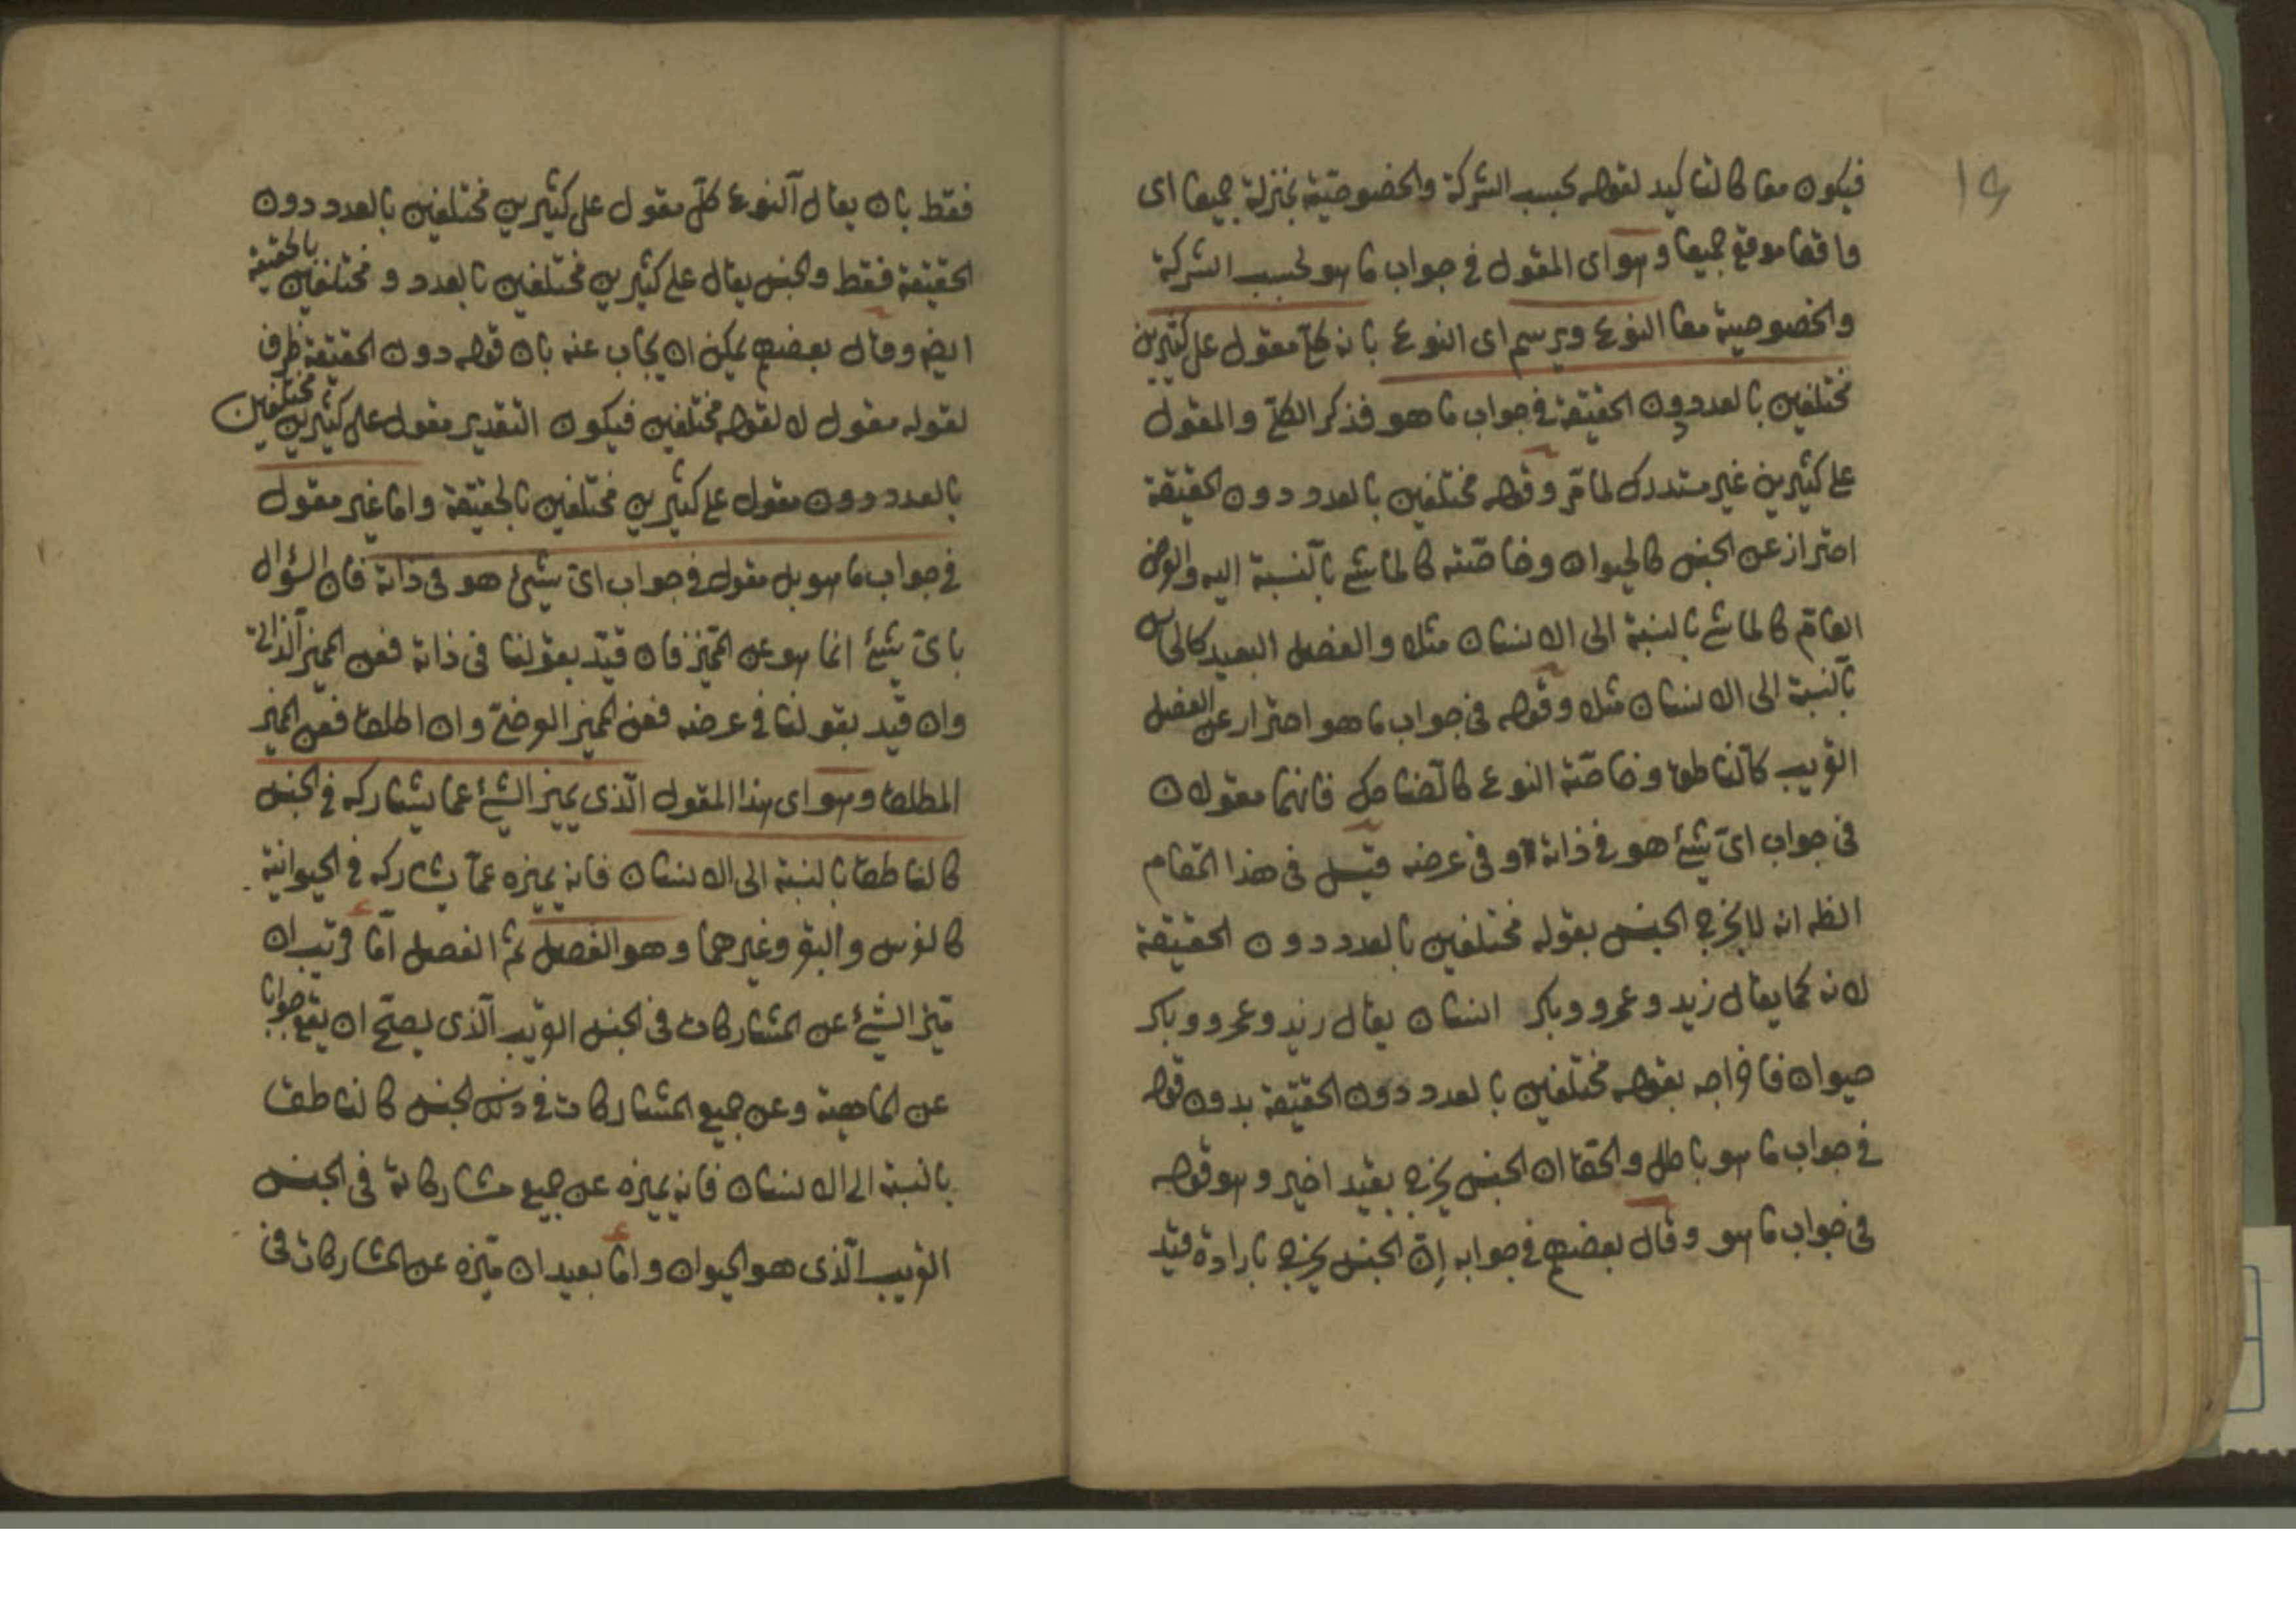 ١٩
فيكون معا كالتأكيد لقوله بحسب الشركة والخصوصية بمنزلة جميعا اى
واقعا موقع جميعا وهو اى المقول فى جواب ما هو بحسب الشركة
والخصوصية معا النوع ويرسم اى النوع بانه كلّ مقول على كثيرين
مختلفين بالعدد دون الحقيقة فى جواب ما هو فذكر الكلّ والمقول
على كثيرين غير مستدرك لما مرّ وقوله مختلفين بالعدد دون الحقيقة
احتراز عن الجنس كالحيوان وخاصّته كالماشى بالنسبة اليه والعرض
العامّ كالماشى بالنسبة الى الانسان مثلا والفصل البعيد كالحاس
بالنسبة الى الانسان مثلا وقوله فى جواب ما هو احتراز عن الفصل
القريب كالناطق وخاصّة النوع كالضاحك فانهما مقولان
فى جواب اىّ شئ هو فى ذاته او فى عرضه قيل فى هذا المقام
الظه انه لا يخرج الجنس بقوله مختلفين بالعدد دون الحقيقة
لانه كما يقال زيد وعمرو وبكر انسان يقال زيد وعمرو وبكر
حيوان فاخراجه بقوله مختلفين بالعدد دون الحقيقة بدون قوله
فى جواب ما هو باطل والحق ان الجنس يخرج بقيد اخير وهو قوله
فى جواب ما هو وقال بعضهم فى جوابه اِنّ الجنس يخرج بارادة قيد
فقط بان يقال النوع كلّ مقول على كثيرين مختلفين بالعدد دون
الحقيقة فقط والجنس يقال على كثيرين مختلفين بالعدد و مختلفين بالحقيقة
ايضه وقال بعضهم يمكن ان يجاب عنه بان قوله دون الحقيقة ظرف
لقوله مقول لا لقوله مختلفين فيكون التقدير مقول على كثيرين مختلفين
بالعدد دون مقول على كثيرين مختلفين بالحقيقة واما غير مقول
فى جواب ما هو بل مقول فى جواب اىّ شئ هو فى ذاته فان السؤال
باىّ شئ انما هو عن المميز فان قيّد بقولنا فى ذاته فعن المميز الذاتى
وان قيد بقولنا فى عرضه فعن المميز العرضىّ وان اطلق فعن المميز
المطلق وهو اى هذا المقول الّذى يميز الشئ عما يشاركه فى الجنس
كالناطق بالنسبة الى الانسان فانه يميزه عمّا يشاركه فى الحيوانية
كالفرس والبقر وغيرهما وهو الفصل ثم الفصل امّا قريب ان
ميّز الشئ عن المشاركات فى الجنس القريب الّذى يصحّ ان يقع جوابا
عن الماهية وعن جميع المشاركات فى ذلك الجنس كالناطق
بالنسبة الى الانسان فانه يميزه عن جميع مشاركاته فى الجنس
القريب الّذى هو الحيوان وامّا بعيد ان ميّزه عن المشاركات فى